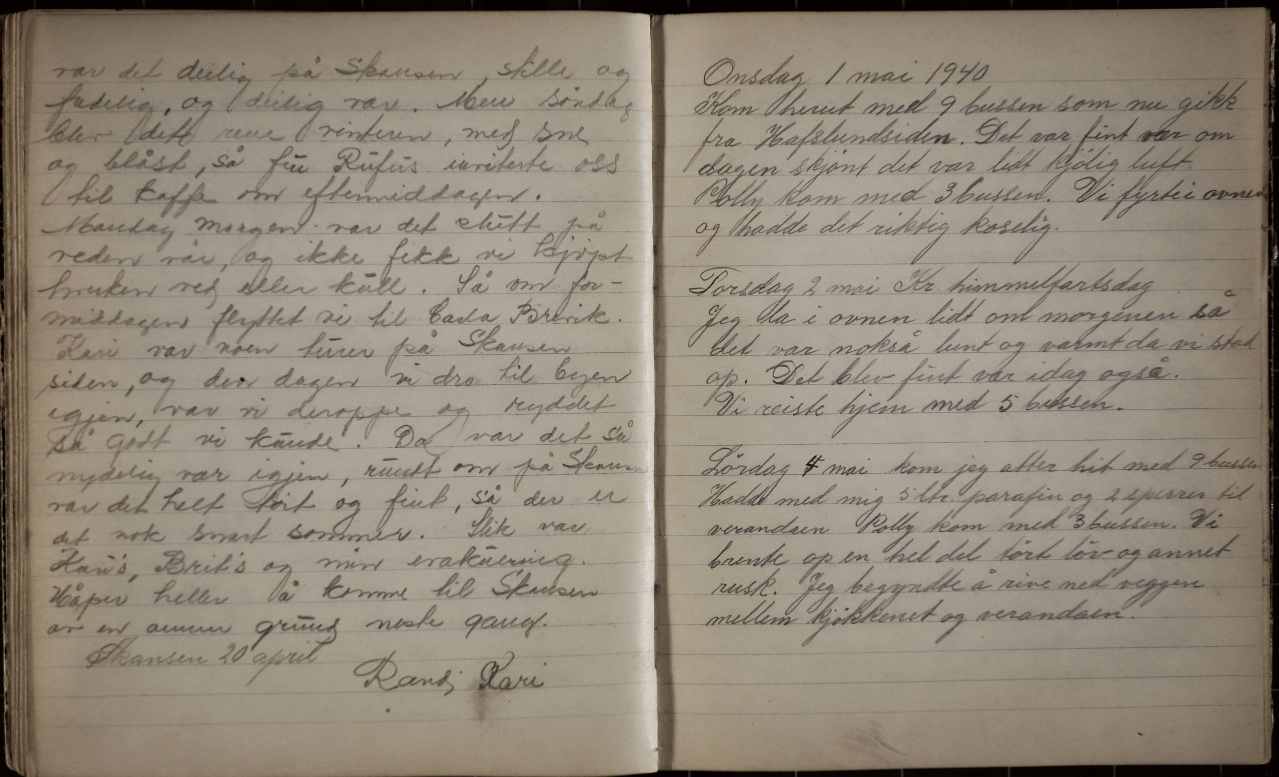 var det deilig på Skansen, stille og
fredelig, og deilig vær. Men søndag
blev det rene vinteren, med sne
og blåst, så fru Rufus inviterte oss
til kaffe om eftermiddagen.
Mandag morgen var det slutt på
veden vår, og ikke fikk vi kjøpt
hverken ved eller kull. Så om for-
middagen flyttet vi til Carla Brevik.
Kari var noen turer på Skansen
siden, og den dagen vi dro til byen
igjen, var vi deroppe og ryddet
så godt vi kunde. Da var det så
nydelig vær igjen, rundt om på Skansen
var det helt tørt og fint, så der er
det nok snart sommer. Slik var
Kari's, Brit's og min evakuering.
Håper heller å komme til Skansen
av en annen grund neste gang.
Skansen 20 april
Randi Kari
Onsdag 1 mai 1940
Kom herut med 9 bussen som nu gikk
fra Hafslundsiden. Det var fint vær om
dagen skjønt det var lidt kjølig luft
Polly kom med 3 bussen. Vi fyrte i ovnen
og hadde det riktig koselig.
Torsdag 2 mai Kr. himmelfartsdag
Jeg la i ovnen lidt om morgenen så
det var nokså lunt og varmt da vi stod
op. Det blev fint vær idag også.
Vi reiste hjem med 5 bussen.
Lørdag 4 mai kom jeg atter hit med 9 bussen
Hadde med mig 5 ltr. parafin og 2 sperrer til
verandaen Polly kom med 3 bussen. Vi
brente op en hel del tørt løv og annet
rusk. Jeg begyndte å rive ned veggen
mellem kjøkkenet og verandaen.